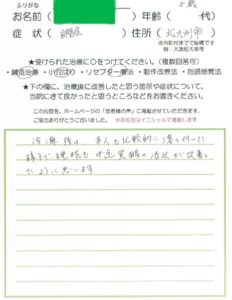 ふりがな
お名前（　　　）年齢（５歳　代）
症状（自閉症）住所（大阪市）
※市町村まででも結構です
例：大阪府大東市
★受けられた治療に○をつけてください。（複数回答可）
・鍼灸治療・小児はり・リセプター療法・動作改善法・指頭感覚法
★下の欄に、治療後に改善したと思う箇所や症状について、
当院にきて良かったと思うところなどをお書きください。
この内容を、ホームページの「患者様の声」に掲載させていただきます。
ご協力ありがとうございました。※お名前はイニシャルで掲載します
治療後は、本人も比較的に落ち付いた
様子で、睡眠も
の症状が改善した
ように思います